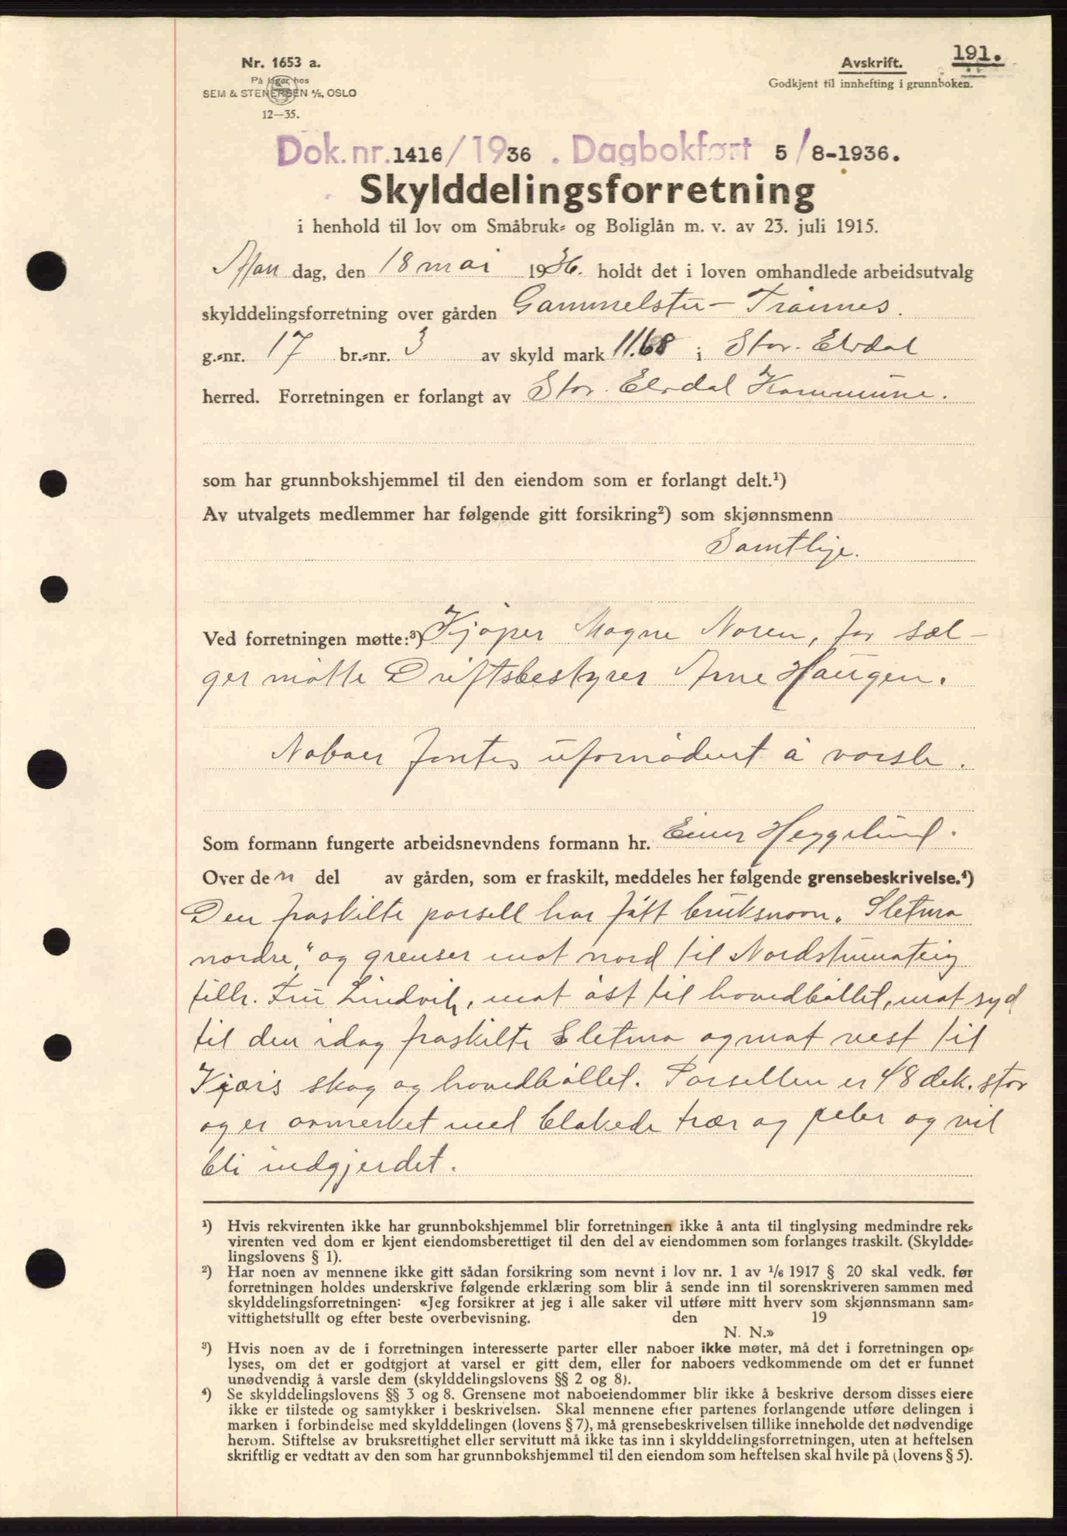 191.
Nr. 1653 a.
På lager hos
SEM & STENERSEN A/S, OSLO
12—35.
Avskrift.
Godkjent til innhefting i grunnboken.
Dok. nr. 1416/1936. Dagbokført 5/8-1936.
Skylddelingsforretning
i henhold til lov om Småbruk- og Boliglån m. v. av 23. juli 1915.
Man dag, den 18 mai 1936. holdt det i loven omhandlede arbeidsutvalg
skylddelingsforretning over gården Gammelstu - Trønnes.
g.-nr. 17 br.-nr. 3 av skyld mark 11.68 i Stor. Elvdal
herred. Forretningen er forlangt av Stor. Elvdal Kommune.
som har grunnbokshjemmel til den eiendom som er forlangt delt.¹)
Av utvalgets medlemmer har følgende gitt forsikring²) som skjønnsmenn
Samtlige.
Ved forretningen møtte:³) Kjøper Magne Noren, for sæl-
ger møtte Driftsbestyrer Arne Haugen.
Naboer fantes ufornødent å varsle.
Som formann fungerte arbeidsnevndens formann hr. Einar Heggelund.
Over den del av gården, som er fraskilt, meddeles her følgende grensebeskrivelse.⁴)
Den fraskilte parsell har fått bruksnavn „Sletmo
nordre," og grenser mot nord til Nordstumoteig
tilh. Fru Lindvik, mot øst til hovedbøllet, mot syd
til den idag fraskilte Sletmo og mot vest til
Kiærs skog og hovedbøllet. Parsellen er 48 dek. stor
og er avmerket med blekede trær og peler og vil
bli indgjerdet.
¹) Hvis rekvirenten ikke har grunnbokshjemmel blir forretningen ikke å anta til tinglysing medmindre rek-
virenten ved dom er kjent eiendomsberettiget til den del av eiendommen som forlanges fraskilt. (Skyldde-
lingslovens § 1).
²) Har noen av mennene ikke gitt sådan forsikring som nevnt i lov nr. 1 av 1/6 1917 § 20 skal vedk. før
forretningen holdes underskrive følgende erklæring som blir å sende inn til sorenskriveren sammen med
skylddelingsforretningen: «Jeg forsikrer at jeg i alle saker vil utføre mitt hverv som skjønnsmann sam-
vittighetsfullt og efter beste overbevisning. den 19
N. N.»
³) Hvis noen av de i forretningen interesserte parter eller naboer ikke møter, må det i forretningen op-
lyses, om det er godtgjort at varsel er gitt dem, eller for naboers vedkommende om det er funnet
unødvendig å varsle dem (skylddelingslovens §§ 2 og 8).
⁴) Se skylddelingslovens §§ 3 og 8. Grensene mot naboeiendommer blir ikke å beskrive dersom disses eiere
ikke er tilstede og samtykker i beskrivelsen. Skal mennene efter partenes forlangende utføre delingen i
marken i forbindelse med skylddelingen (lovens § 7), må grensebeskrivelsen tillike inneholde det nødvendige
herom. Stiftelse av bruksrettighet eller servitutt må ikke tas inn i skylddelingsforretningen, uten at heftelsen
skriftlig er vedtatt av den som har grunnbokshjemmel til den eiendom som heftelsen skal hvile på (lovens § 5).